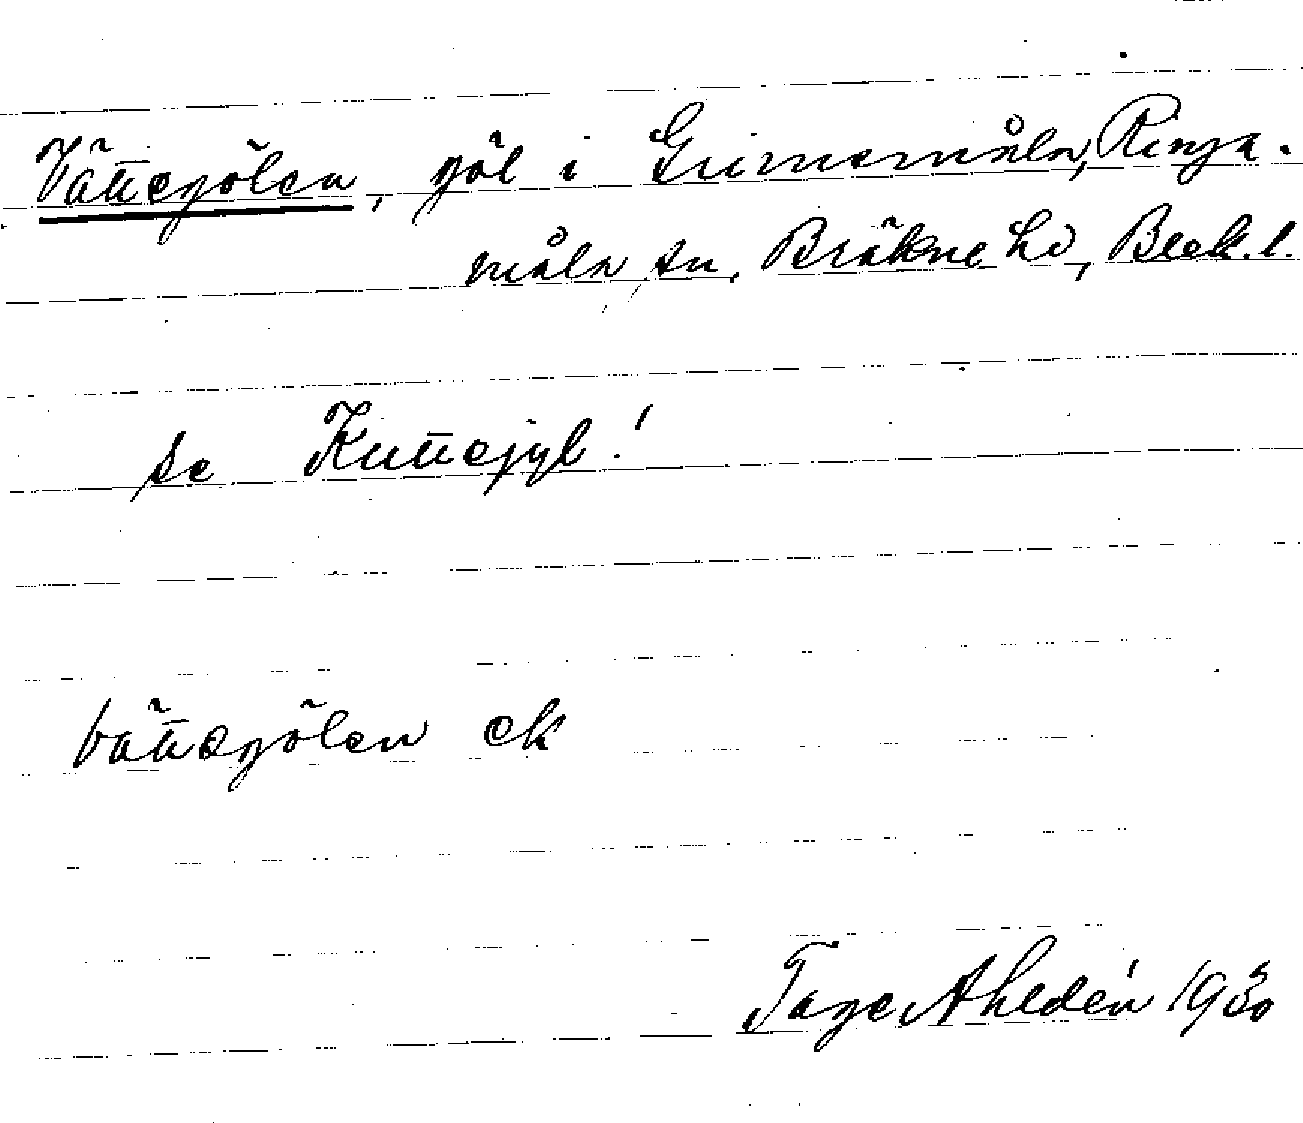 Vättegölen, göl i Grimsmåla, Ringa-
måla sn. Bräkne hd, Blek. l.
se Kuttejyl!
vättegölen ek
Tage Ahldén 1930